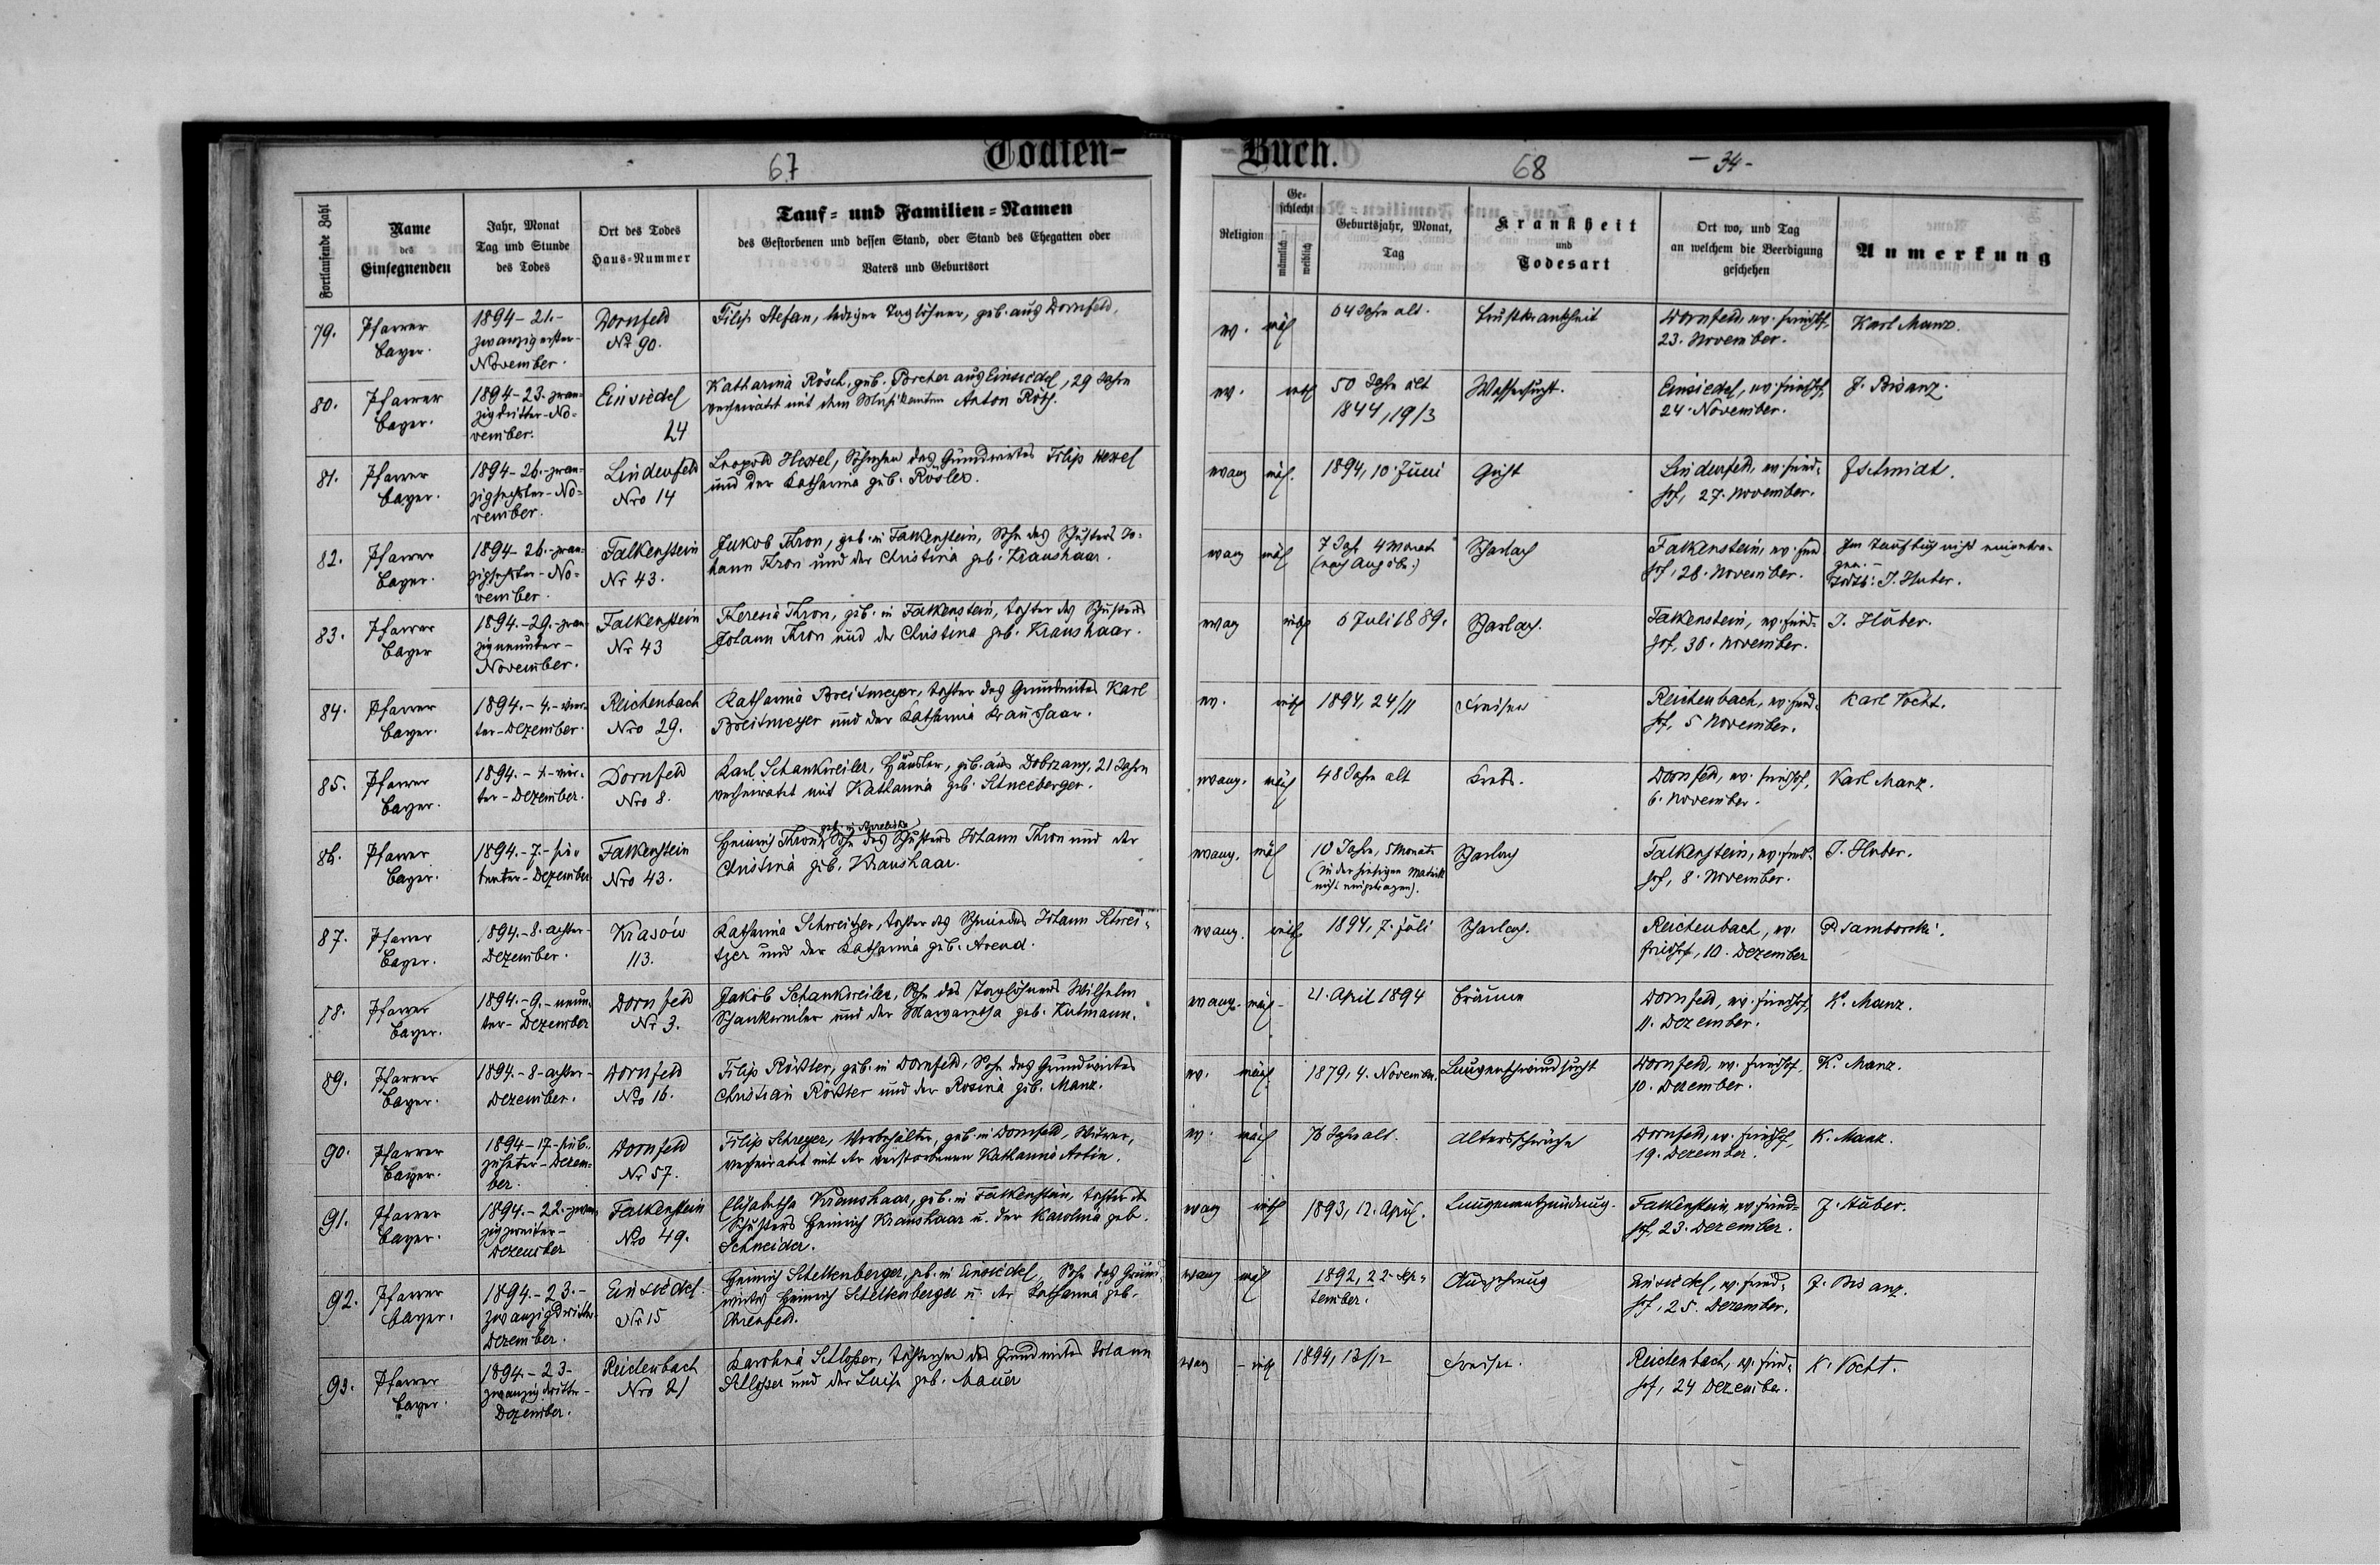 67
Todten-
Buch.
68
- 34 -
Fortlaufende Zahl
Name
des
Einsegnenden
Jahr, Monat
Tag und Stunde
des Todes
Ort des Todes
Haus-Nummer
Tauf- und Familien-Namen
des Gestorbenen und dessen Stand, oder Stand des Ehegatten oder
Vaters und Geburtsort
Religion
Ge-
schlecht
männlich
weiblich
Geburtsjahr, Monat,
Tag
Krankheit
und
Todesart
Ort wo, und Tag
an welchem die Beerdigung
geschehen
Anmerkung
79. Pfarrer
Bayer.
1894 - 21.-
zwanzig erster-
November.
Dornfeld
No 90.
Filip Stefan, lediger Taglöhner, geb. aus Dornfeld.
ev. mäl
64 Jahre alt.
Brustkrankheit
Dornfeld, ev. Friedhof,
23. November.
Karl Manz.
80. Pfarrer
Bayer.
1894 - 23. zwan-
zigdritter - No-
vember.
Einsiedel
24
Katharina Rösch, geb. Porcher aus Einsiedel, 29 Jahre
verheiratet mit dem Musikanten Anton Rösch.
ev. weibl
50 Jahre alt
1844, 19/3
Wassersucht.
Einsiedel, ev. Friedhof,
24. November.
J. Bisanz.
81. Pfarrer
Bayer.
1894 - 26.- zwan-
zigsechster - No-
vember.
Lindenfeld
Nro 14
Leopold Hexel, Söhnchen des Grundwirtes Filip Hexel
und der Katharina geb. Rösler.
evang mäl.
1894, 10. Juni
Gicht
Lindenfeld, ev. Fried-
hof, 27. November.
J Schmidt.
82. Pfarrer
Bayer.
1894 - 26.- zwan-
zigsechster - No-
vember.
Falkenstein
Nr 43.
Jakob Thron, geb. in Falkenstein, Sohn des Schusters Jo-
hann Thron und der Christina geb. Kraushaar.
evang mäl
7 Jah 4 Monate
(nach Angabe.)
Scharlach
Falkenstein, ev. Fried
hof, 28. November.
Im Taufbuch nicht eingetra-
gen. -
J. Huber.
83. Pfarrer
Bayer
1894. - 29. - zwan-
zigneunter -
November.
Falkenstein
Nr 43
Theresia Thron, geb. in Falkenstein, Tochter des Schusters
Johann Thron und der Christina geb. Kraushaar.
evang weibl
6 Juli 1889.
Scharlach.
Falkenstein, ev. Fried-
hof, 30. November.
J. Huber.
84. Pfarrer
Bayer.
1894. - 4. - vier-
ter - Dezember.
Reichenbach
Nro 29.
Katharina Breitmeyer, Tochter des Grundwirtes Karl
Breitmeyer und der Katharina Kraushaar.
ev. weibl
1894, 24/11
Fraisen
Reichenbach, ev. Fried-
hof, 5 November.
Karl Vocht.
85. Pfarrer
Bayer.
1894. - 4. - vier-
ter - Dezember.
Dornfeld
Nro 8.
Karl Schankweiler, Häusler, geb. aus Dobrzany, 21 Jahre
verheiratet mit Katharina geb. Schneeberger.
evang. mäl
48 Jahre alt
Krebs.
Dornfeld, ev. Friedhof,
6. November.
Karl Manz.
86. Pfarrer
Bayer.
1894. - 7. - sie-
benter - Dezember
Falkenstein
Nro 43.
Heinrich Thron, Sohn des Schusters Johann Thron und der
Christina geb. Kraushaar.
evang. mäl
10 Jahre, 5 Monate
(in der hiesigen Matrik
nicht eingetragen).
Scharlach
Falkenstein, ev. Fried-
hof, 8. November.
J. Huber.
87. Pfarrer
Bayer.
1894. - 8. achter-
Dezember.
Krasów
113.
Katharina Schweitzer, Tochter des Schmiedes Johann Schwei-
tzer und der Katharina geb. Arend.
evang. weibl
1894, 7. Juli
Scharlach.
Reichenbach, ev.
Friedhof, 10. Dezember
P Samborski.
88. Pfarrer
Bayer.
1894. - 9. - neun-
ter - Dezember
Dornfeld
Nr 3.
Jakob Schankweiler, Sohn des Taglöhners Wilhelm
Schankweiler und der Margaretha geb. Kutmann.
evang. mäl
21. April 1894
Bräune
Dornfeld, ev. Friedhof,
11. Dezember.
K. Manz.
89. Pfarrer
Bayer.
1894. - 8 - achter -
Dezember.
Dornfeld
No 16.
Filip Rößler, geb. in Dornfeld, Sohn des Grundwirtes
Christian Rößler und der Rosina geb. Manz.
ev. mäl.
1879, 4. November.
Lungenschwindsucht
Dornfeld, ev. Friedhof,
10. Dezember.
K. Manz.
90. Pfarrer
Bayer.
1894 - 17 - sieb-
zehnter - Dezem-
ber.
Dornfeld
Nr 57.
Filip Schreyer, Vorbehälter, geb. in Dornfeld, Witwer,
verheiratet mit der verstorbenen Katharina
ev. mäl
76 Jahre alt.
Altersschwäche
Dornfeld, ev. Friedhof,
19. Dezember.
K. Manz.
91. Pfarrer
Bayer.
1894. - 22. - zwan-
zigzweiter -
Dezember
Falkenstein
No 49.
Elisabetha Kraushaar, geb. in Falkenstein, Tochter des
Schusters Heinrich Kraushaar u. der Karolina geb.
Schneider.
evang weibl
1893, 12. April.
Lungenentzündung.
Falkenstein, ev. Fried-
hof, 23. Dezember.
J. Huber.
92. Pfarrer
Bayer.
1894. - 23. -
zwanzigdritter
Dezember.
Einsiedel.
Nr 15
Heinrich Schellenberger, geb. in Einsiedel, Sohn des Grund-
wirtes Heinrich Schellenberger u. der Katharina geb.
Ohrenfeld.
evang mäl
1892, 22. Sep-
tember.
Auszehrung
Einsiedel, ev. Fried-
hof, 25. Dezember.
J. Bisanz.
93. Pfarrer
Bayer.
1894. - 23 -
zwanzigdritter -
Dezember.
Reichenbach
Nro 21
Karolina Schloßer, Töchterchen des Grundwirtes Johann
Schloßer und der Luise geb. Mauer
evang - weibl
1894, 13/12
Fraisen.
Reichenbach, ev. Fried-
hof, 24 Dezember.
K. Vocht.